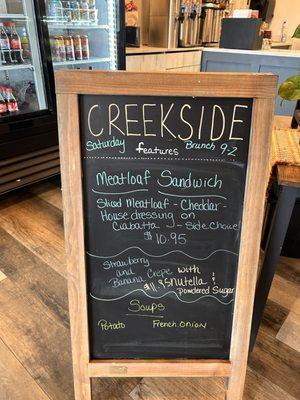 CREEKSIDE
Saturday features Brunch 9-2
Meatloaf Sandwich
Sliced Meatloaf - Cheddar
House dressing on
Ciabatta - Side choice
$10.95
Strawberry
and
Banana Crepe with
$11.95 Nutella &
powdered Sugar
Soups
Potato French Onion